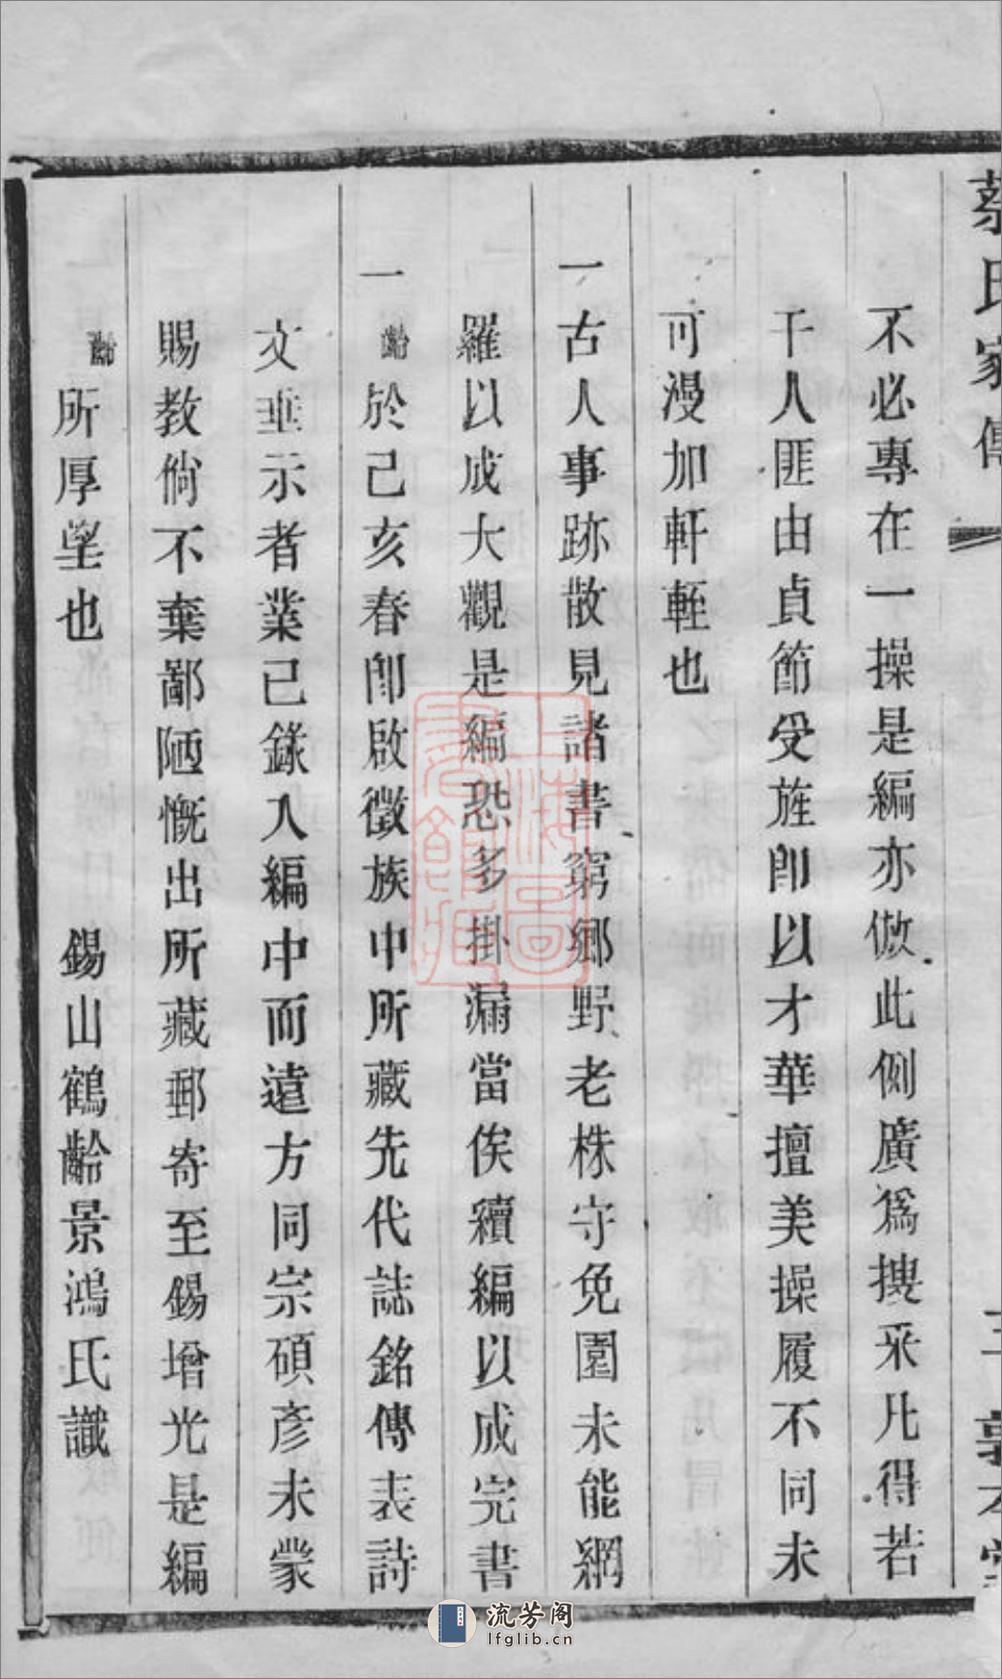 蔡氏家傳
不必專在一操是編亦倣此例廣爲搜采凡得若
干人匪由貞節受旌卽以才華擅美操履不同未
可漫加軒輊也
一古人事跡散見諸書窮鄉野老株守兔園未能網
羅以成大觀是編恐多掛漏當俟續編以成完書
一齡於己亥春卽啟徵族中所藏先代誌銘傳表詩
文垂示者業已錄入編中而遠方同宗碩彥未蒙
賜教倘不棄鄙陋慨出所藏郵寄至錫增光是編
齡所厚望也 錫山鶴齡景鴻氏識
上海圖書館藏
流芳阁
lfglib.cn